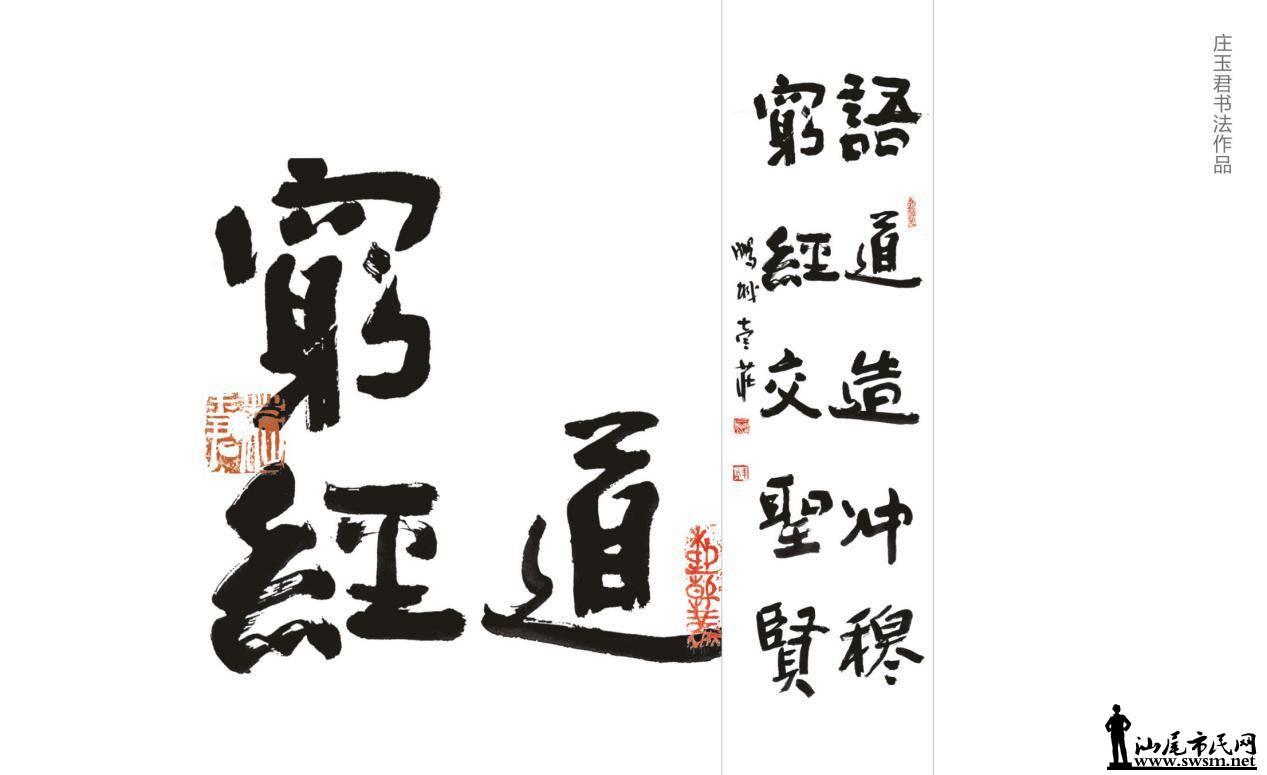 庄玉君书法作品
語道造冲穆
窮經交聖賢
鵬城 壹莊
道
窮經
汕尾市民网
www.swsm.net